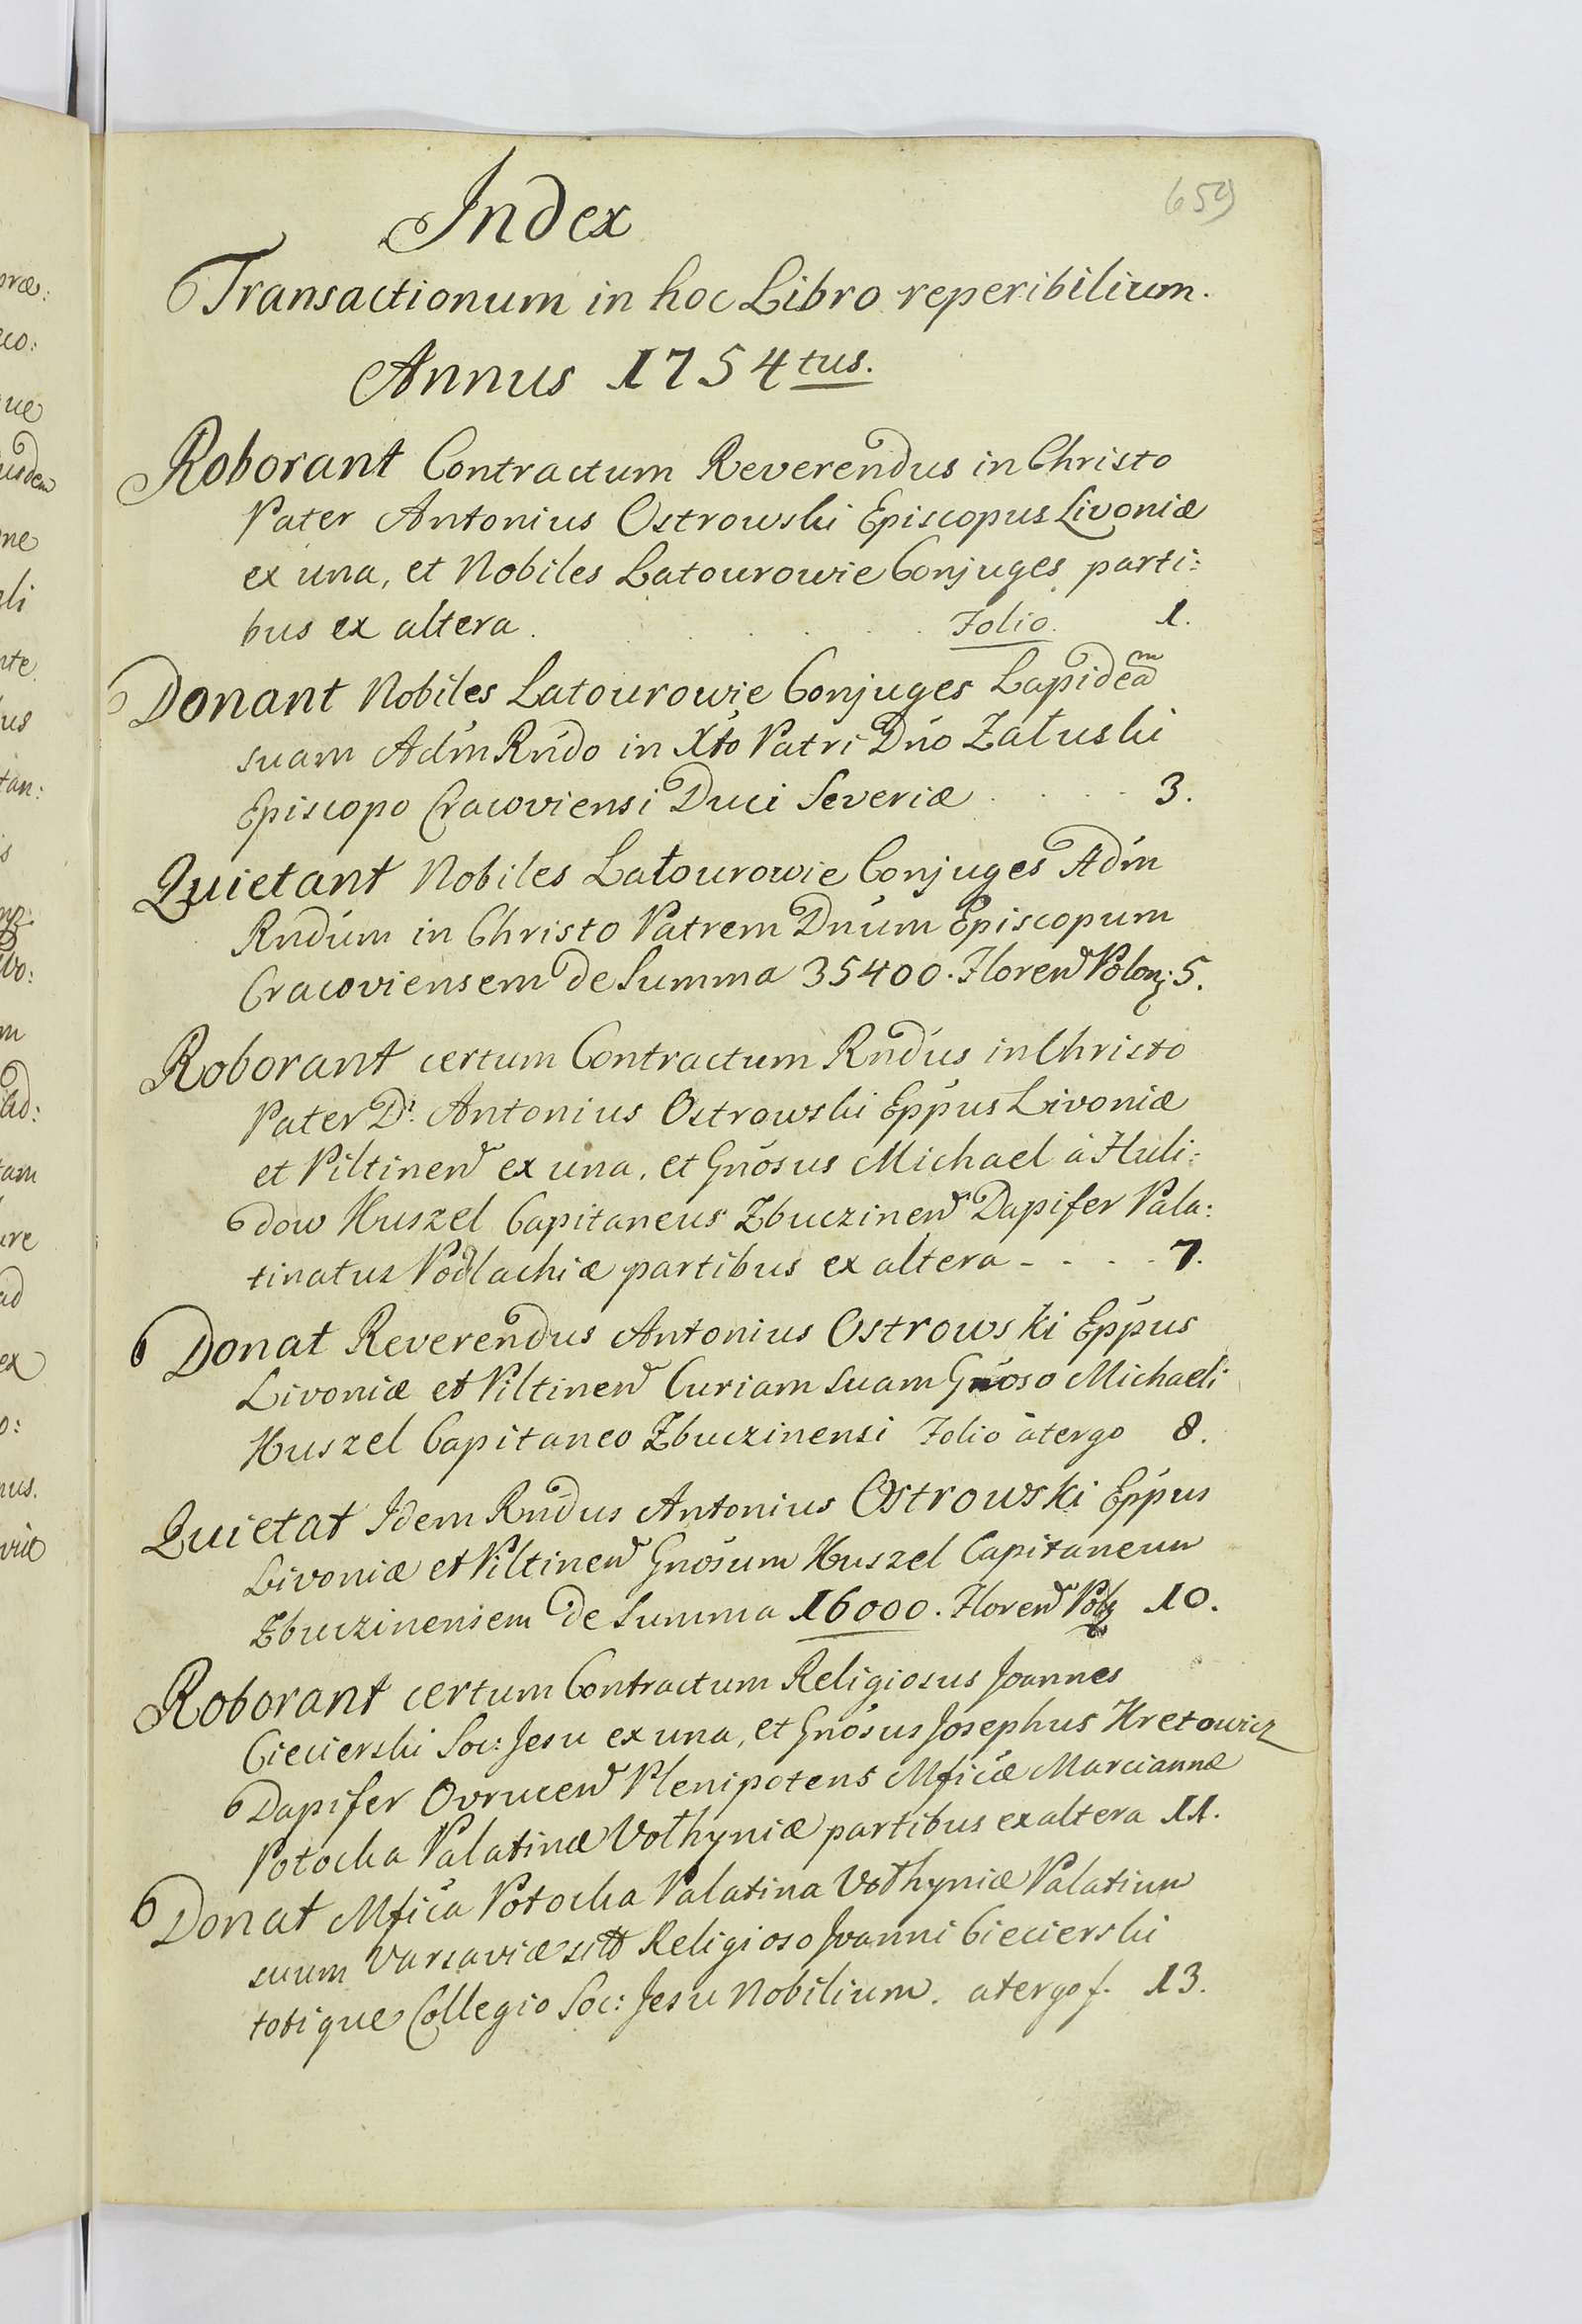 659
Index
Transactionum in hoc Libro reperibilium.
Annus 1754tus.
Roborant Contractum Reverendus in Christo
Pater Antonius Ostrowski Episcopus Livoniæ
ex una, et Nobiles Latourowie Conjuges parti:
bus ex altera . . . . . . Folio. 1.
Donant Nobiles Latourowie Conjuges Lapideam
suam Adm Rndo in Xto Patri Dno Załuski
Episcopo Cracoviensi Duci Severiæ . . . . 3.
Quietant Nobiles Latourowie Conjuges Adm
Rndum in Christo Patrem Dnum Episcopum
Cracoviensem de Summa 35400. Floren Polon: 5.
Roborant certum Contractum Rndus in Christo
Pater D: Antonius Ostrowski Eppus Livoniæ
et Piltinen ex una, et Gnosus Michael à Huli:
dow Huszel Capitaneus Zbuczinen Dapifer Pala:
tinatus Podlachiæ partibus ex altera - . . . 7.
Donat Reverendus Antonius Ostrowski Eppus
Livoniæ et Piltinen Curiam suam Gnoso Michaeli
Huszel Capitaneo Zbuczinensi Folio àtergo 8.
Quietat Idem Rndus Antonius Ostrowski Eppus
Livoniæ et Piltinen Gnosum Huszel Capitaneum
Zbuczinensem de Summa 16000. Floren Pol 10.
Roborant certum Contractum Religiosus Joannes
Ciecierski Soc: Jesu ex una, et Gnosus Josephus Hretowicz
Dapifer Ovrucen Plenipotens Mficæ Marciannæ
Potocka Palatinæ Volhyniæ partibus ex altera 11.
Donat Mfica Potocka Palatina Volhyniæ Palatium
suum Varsaviæ Religioso Joanni Ciecierski
totique Collegio Soc: Jesu Nobilium. atergo f. 13.